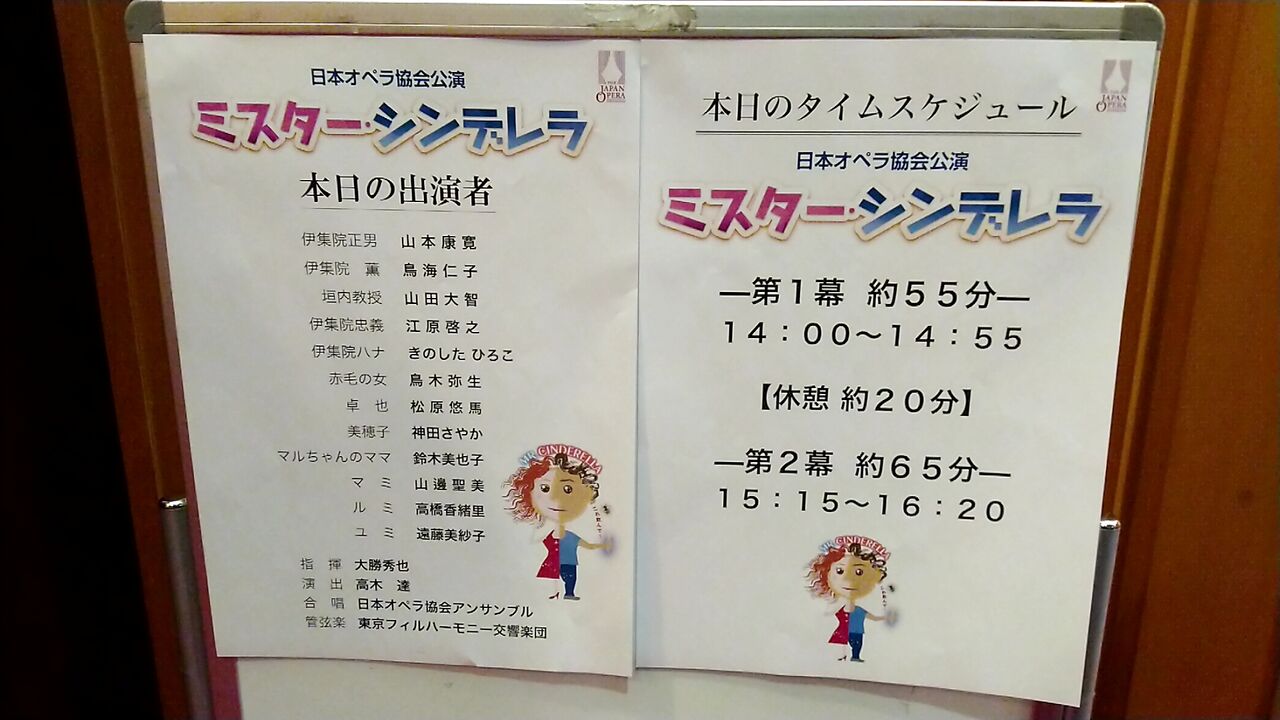 日本オペラ協会公演
JAPAN
OPERA
ミスター・シンデレラ
本日の出演者
伊集院正男 山本康寛
伊集院 薫 鳥海仁子
垣内教授 山田大智
伊集院忠義 江原啓之
伊集院ハナ きのした ひろこ
赤毛の女 鳥木弥生
卓也 松原悠馬
美穂子 神田さやか
マルちゃんのママ 鈴木美也子
マミ 山邊聖美
ルミ 高橋香緒里
ユミ 遠藤美紗子
指揮 大勝秀也
演出 高木 達
合唱 日本オペラ協会アンサンブル
管弦楽 東京フィルハーモニー交響楽団
MR. CINDERELLA
本日のタイムスケジュール
JAPAN
OPERA
日本オペラ協会公演
ミスター・シンデレラ
―第1幕 約55分―
14:00～14:55
【休憩 約20分】
―第2幕 約65分―
15:15～16:20
MR. CINDERELLA